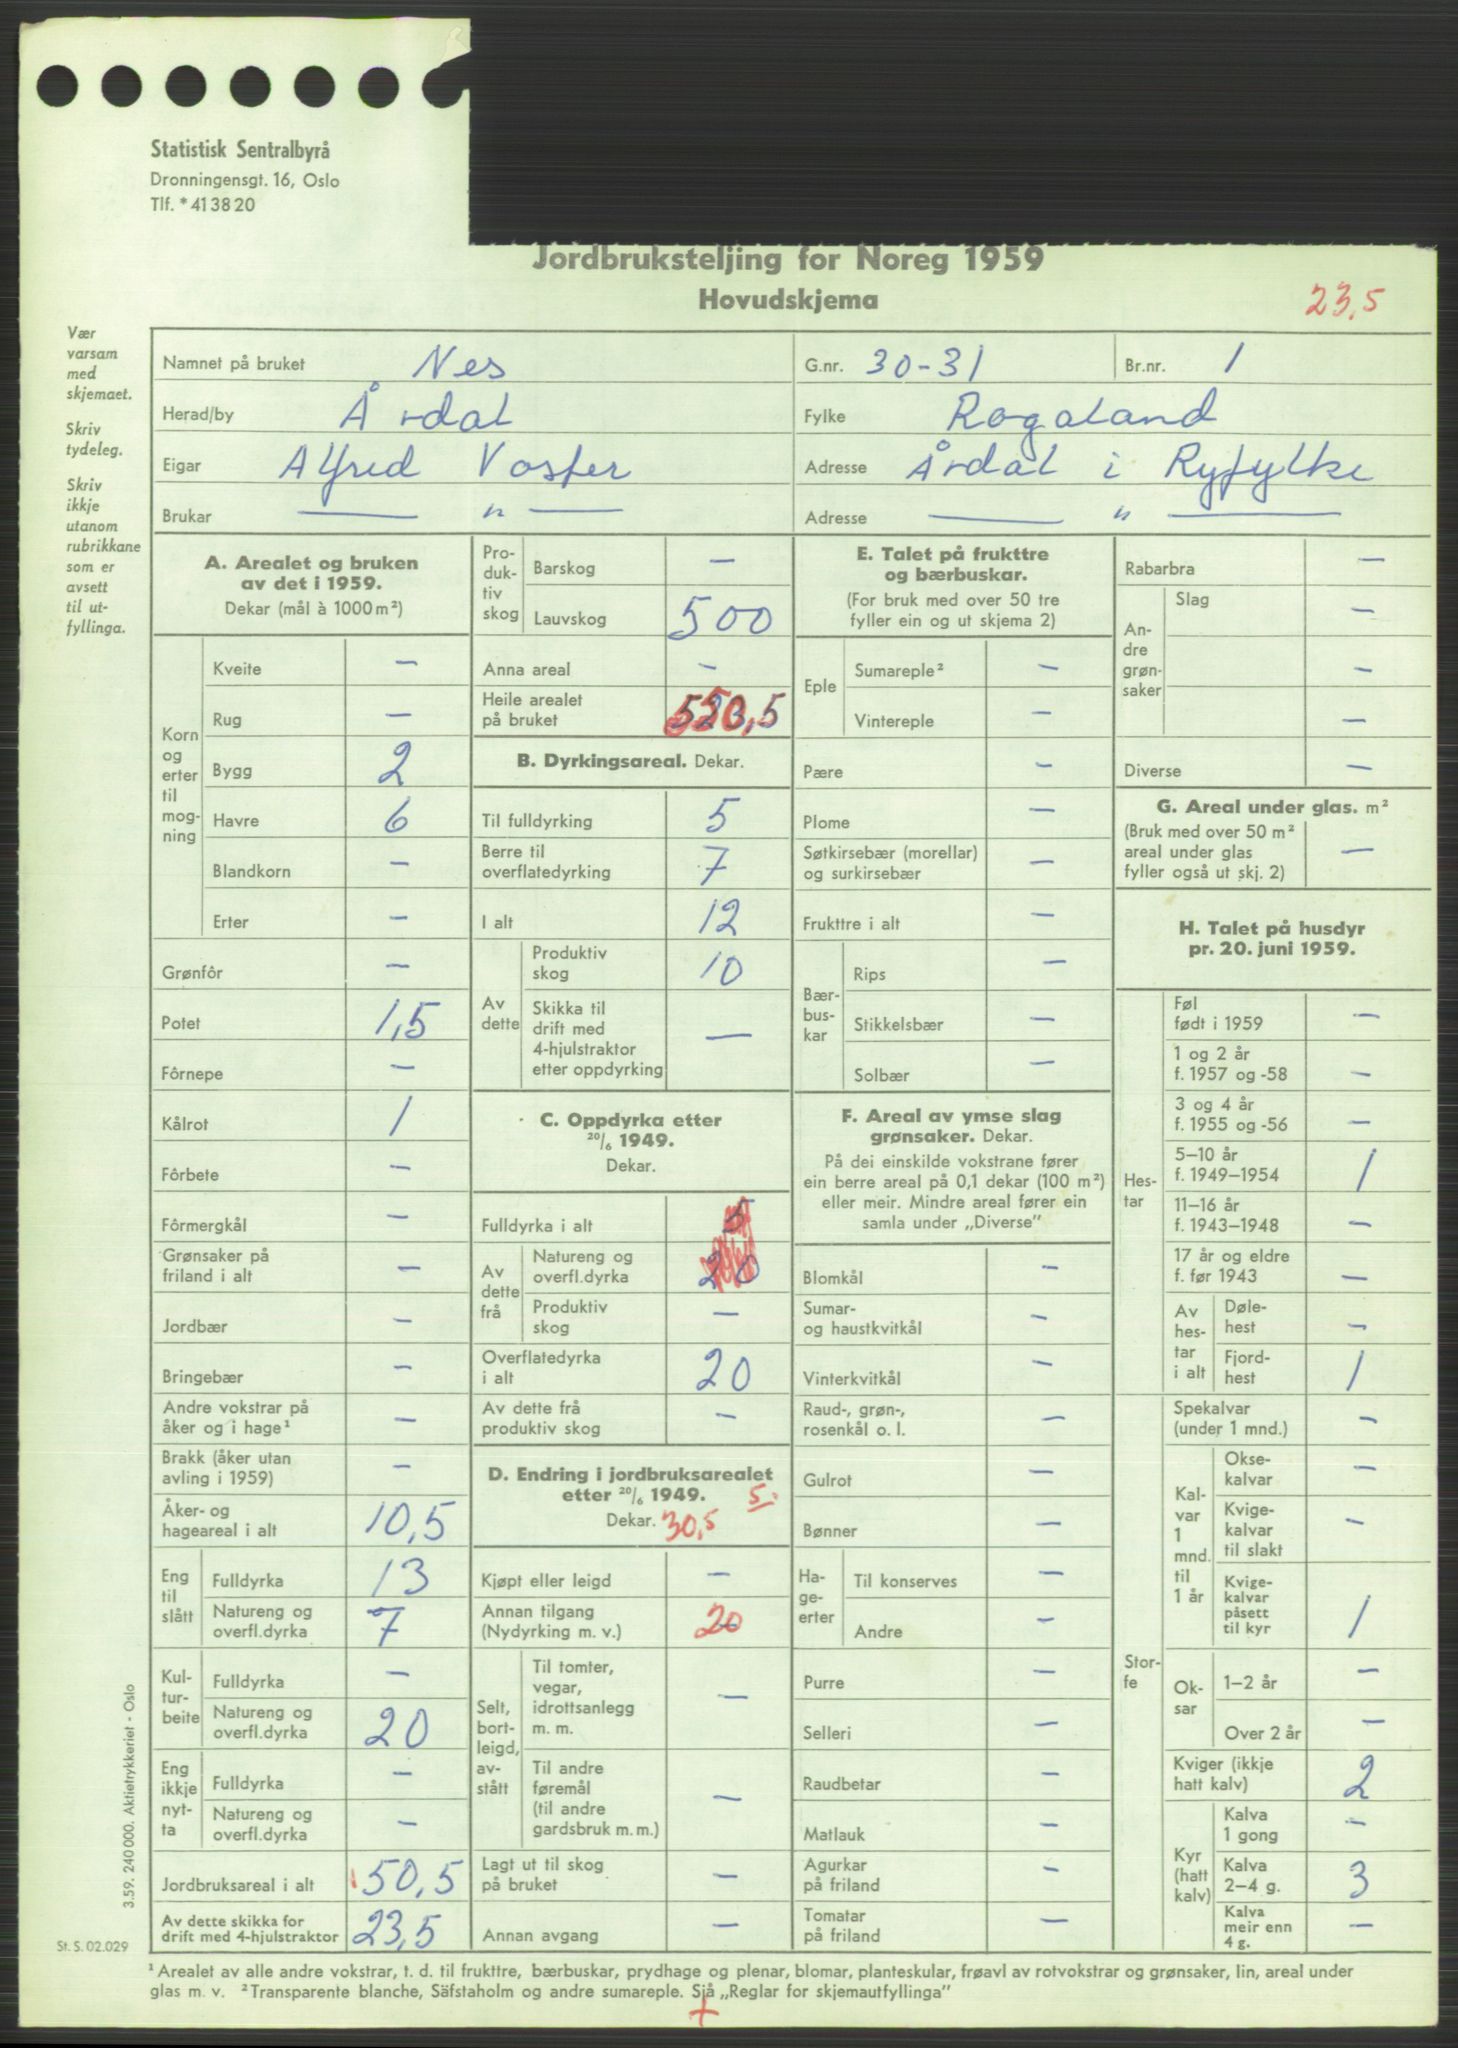 Statistisk Sentralbyrå
Dronningensgt. 16, Oslo
Tlf. * 41 38 20
Jordbruksteljing for Noreg 1959
Hovudskjema
23,5
Vær
varsam
med
skjemaet.
Skriv
tydeleg.
Skriv
ikkje
utanom
rubrikkane
som er
avsett
til ut-
fyllinga.
Namnet på bruket Nes G.nr. 30-31 Br.nr. 1
Herad/by Årdal Fylke Rogaland
Eigar Alfred Voster Adresse Årdal i Ryfylke
Brukar — " — Adresse — " —
A. Arealet og bruken
av det i 1959.
Dekar (mål à 1000 m²)
Korn
og
erter
til
mog-
ning
Kveite –
Rug –
Bygg 2
Havre 6
Blandkorn –
Erter –
Grønfôr –
Potet 1,5
Fôrnepe –
Kålrot 1
Fôrbete –
Fôrmergkål –
Grønsaker på
friland i alt –
Jordbær –
Bringebær –
Andre vokstrar på
åker og i hage¹ –
Brakk (åker utan
avling i 1959) –
Åker- og
hageareal i alt 10,5
Eng
til
slått
Fulldyrka 13
Natureng og
overfl.dyrka 7
Kul-
tur-
beite
Fulldyrka –
Natureng og
overfl.dyrka 20
Eng
ikkje
nyt-
ta
Fulldyrka –
Natureng og
overfl.dyrka –
Jordbruksareal i alt 50,5
Av dette skikka for
drift med 4-hjulstraktor 23,5
Pro-
duk-
tiv
skog
Barskog –
Lauvskog 500
Anna areal –
Heile arealet
på bruket 550,5
B. Dyrkingsareal. Dekar.
Til fulldyrking 5
Berre til
overflatedyrking 7
I alt 12
Av
dette
Produktiv
skog 10
Skikka til
drift med
4-hjulstraktor
etter oppdyrking —
C. Oppdyrka etter
20/6 1949.
Dekar.
Fulldyrka i alt 5
Av
dette
frå
Natureng og
overfl.dyrka 20
Produktiv
skog –
Overflatedyrka
i alt 20
Av dette frå
produktiv skog –
D. Endring i jordbruksarealet
etter 20/6 1949. 5.
Dekar. 30,5
Kjøpt eller leigd –
Annan tilgang
(Nydyrking m. v.) 20
Selt,
bort-
leigd,
av-
stått
Til tomter,
vegar,
idrottsanlegg
m. m. –
Til andre
føremål
(til andre
gardsbruk m. m.) –
Lagt ut til skog
på bruket –
Annan avgang –
E. Talet på frukttre
og bærbuskar.
(For bruk med over 50 tre
fyller ein og ut skjema 2)
Eple
Sumareple² –
Vintereple –
Pære –
Plome –
Søtkirsebær (morellar)
og surkirsebær –
Frukttre i alt –
Bær-
bus-
kar
Rips –
Stikkelsbær –
Solbær –
F. Areal av ymse slag
grønsaker. Dekar.
På dei einskilde vokstrane fører
ein berre areal på 0,1 dekar (100 m²)
eller meir. Mindre areal fører ein
samla under „Diverse”
Blomkål –
Sumar-
og haustkvitkål –
Vinterkvitkål –
Raud-, grøn-,
rosenkål o. l. –
Gulrot –
Bønner –
Ha-
ge-
erter
Til konserves –
Andre –
Purre –
Selleri –
Raudbetar –
Matlauk –
Agurkar
på friland –
Tomatar
på friland –
Rabarbra –
An-
dre
grøn-
saker
Slag –
–
–
Diverse –
G. Areal under glas. m²
(Bruk med over 50 m²
areal under glas
fyller også ut skj. 2) –
H. Talet på husdyr
pr. 20. juni 1959.
Hes-
tar
Føl
født i 1959 –
1 og 2 år
f. 1957 og -58 –
3 og 4 år
f. 1955 og -56 –
5–10 år
f. 1949–1954 1
11–16 år
f. 1943–1948 –
17 år og eldre
f. før 1943 –
Av
hes-
tar
i alt
Døle-
hest –
Fjord-
hest 1
Stor-
fe
Spekalvar
(under 1 mnd.) –
Kal-
var
1
mnd.
til
1 år
Okse-
kalvar –
Kvige-
kalvar
til slakt –
Kvige-
kalvar
påsett
til kyr 1
Ok-
sar
1–2 år –
Over 2 år –
Kviger (ikkje
hatt kalv) 2
Kyr
(hatt
kalv)
Kalva
1 gong –
Kalva
2–4 g. 3
Kalva
meir enn
4 g. –
3.59. 240 000. Aktietrykkeriet - Oslo
St. S. 02.029
¹ Arealet av alle andre vokstrar, t. d. til frukttre, bærbuskar, prydhage og plenar, blomar, planteskular, frøavl av rotvokstrar og grønsaker, lin, areal under
glas m. v. ² Transparente blanche, Säfstaholm og andre sumareple. Sjå „Reglar for skjemautfyllinga”
+